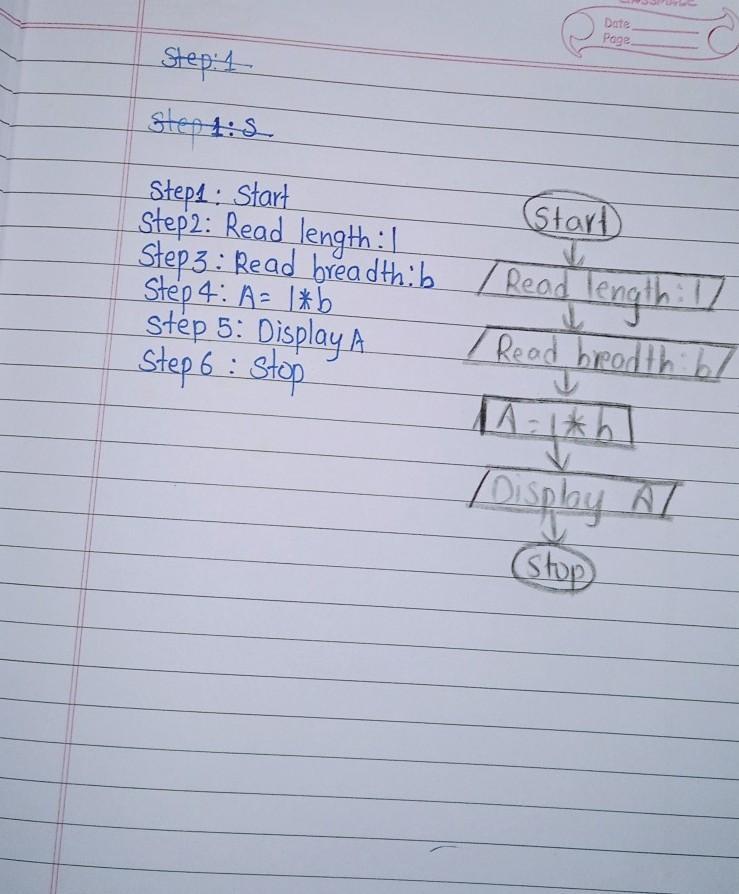 Date
Page
Step:1
Step 1: S
Step1: Start
Step2: Read length:l
Step3: Read breadth:b
Step 4: A= l*b
Step 5: Display A
Step 6 : Stop
Start
Read length:l
Read breadth:b
A=l*b
Display A
Stop